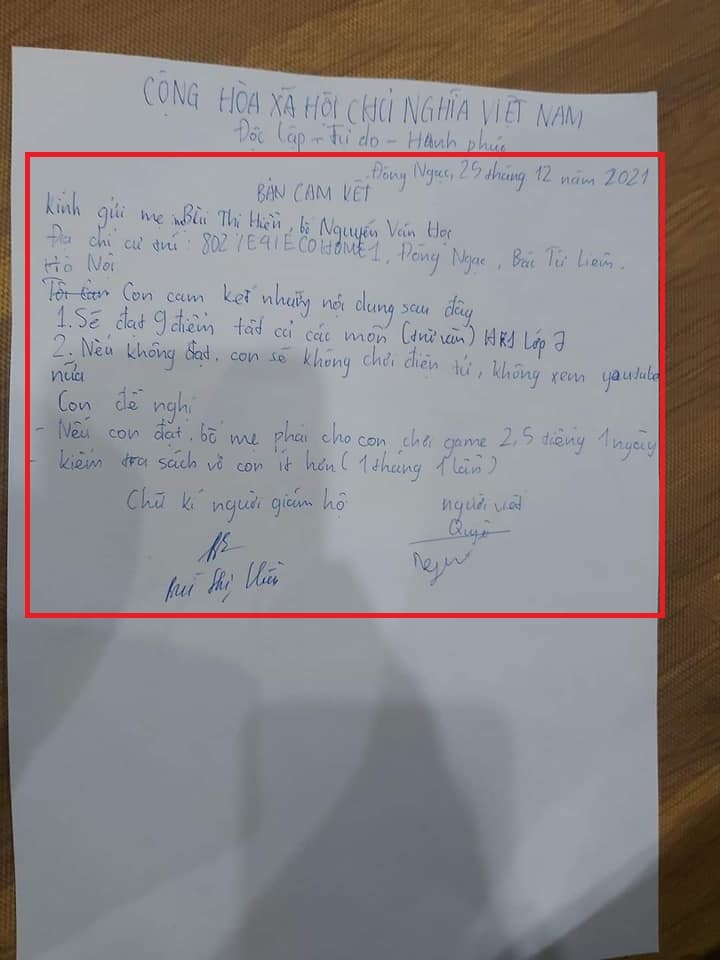 CỘNG HÒA XÃ HỘI CHỦ NGHĨA VIỆT NAM
Độc lập - Tự do - Hạnh phúc
Đông Ngạc, 25 tháng 12 năm 2021
BẢN CAM KẾT
Kính gửi mẹ Bùi Thị Hiền, bố Nguyễn Văn Học
Địa chỉ cư trú: 802/E4/ECOHOME1, Đông Ngạc, Bắc Từ Liêm.
Hà Nội
Con cam kết những nội dung sau đây
1. Sẽ đạt 9 điểm tất cả các môn (trừ văn) HK1 lớp 7
2. Nếu không đạt, con sẽ không chơi điện tử, không xem youtube
nữa
Con đề nghị
- Nếu con đạt, bố mẹ phải cho con chơi game 2,5 tiếng 1 ngày
- kiểm tra sách vở con ít hơn (1 tháng 1 lần)
Chữ kí người giám hộ
người viết
Bùi Thị Hiền